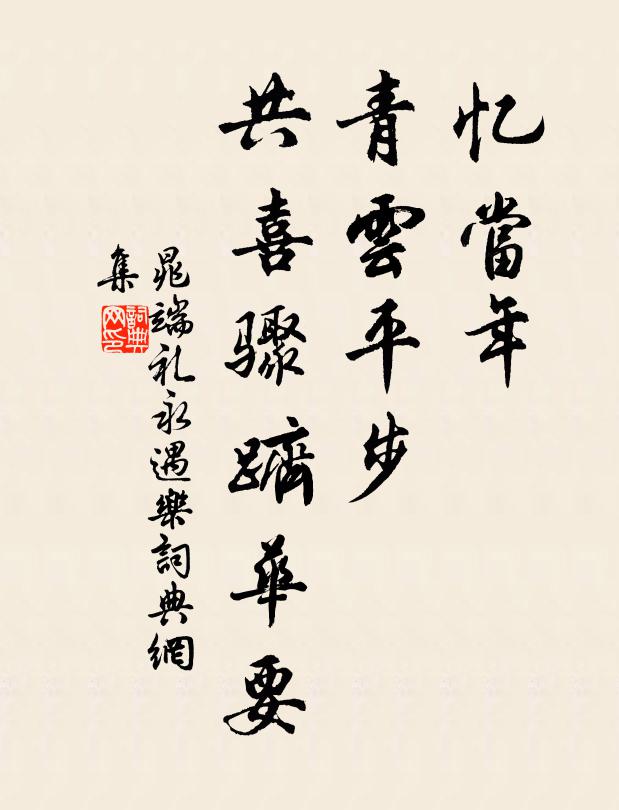 忆當年
青雲平步
共喜驟躋華要
晁端礼永遇樂詞典網
集
詞典
网印